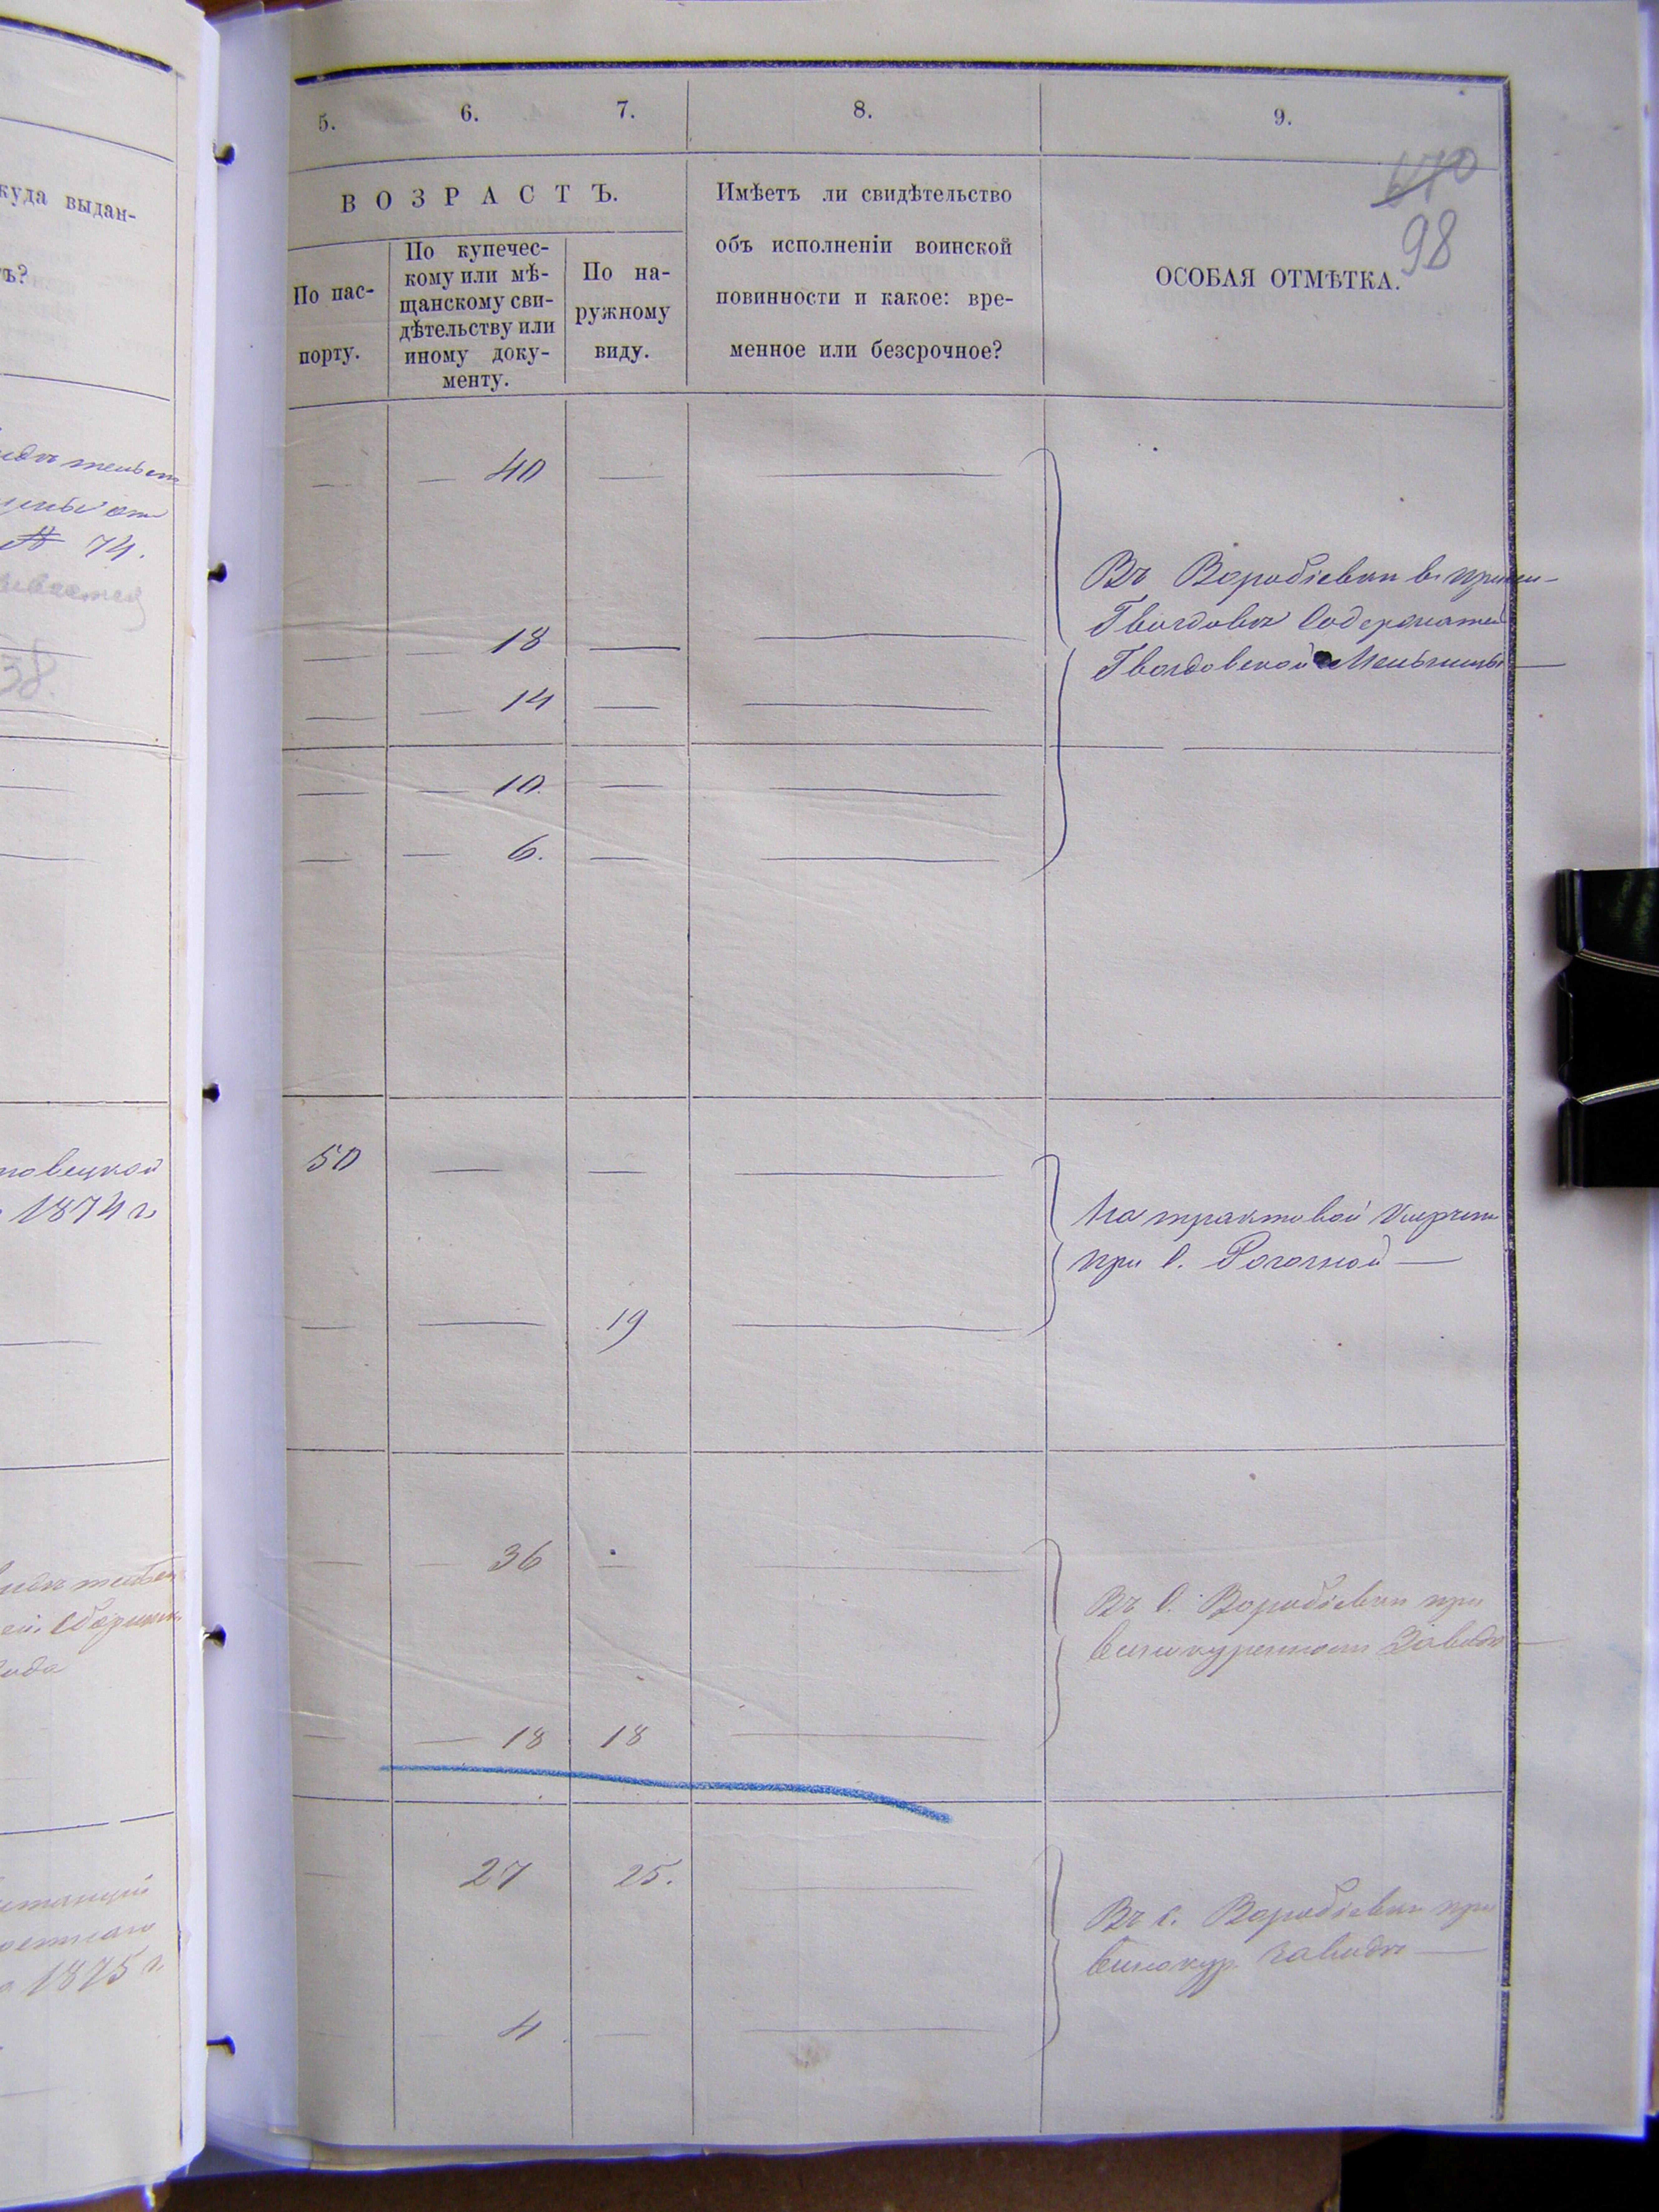 куда выдан-
ъ?
№ 74.
38.
1874 г.
1875 г.
5. 6. 7. 8. 9.
670
98
ВОЗРАСТЪ.
По пас-
порту.
По купечес-
кому или мѣ-
щанскому сви-
дѣтельству или
иному доку-
менту.
По на-
ружному
виду.
Имѣетъ ли свидѣтельство
объ исполненіи воинской
повинности и какое: вре-
менное или безсрочное?
ОСОБАЯ ОТМѢТКА.
— — 40 — —
Въ Воробіевки в.
Гвоздовъ Содержатель
Гвоздовской Мельницы —
— — 18 — —
— — 14 — —
— — 10. — —
— — 6. — —
50 — — —
На трактовой
при С. Рогозной —
— — 19 —
— — 36 — —
Въ С. Воробіевки при
винокуренномъ Заводѣ —
— — 18 18 —
— 27 25. —
Въ с. Воробіевки при
винокур. заводѣ —
— — 4 — —